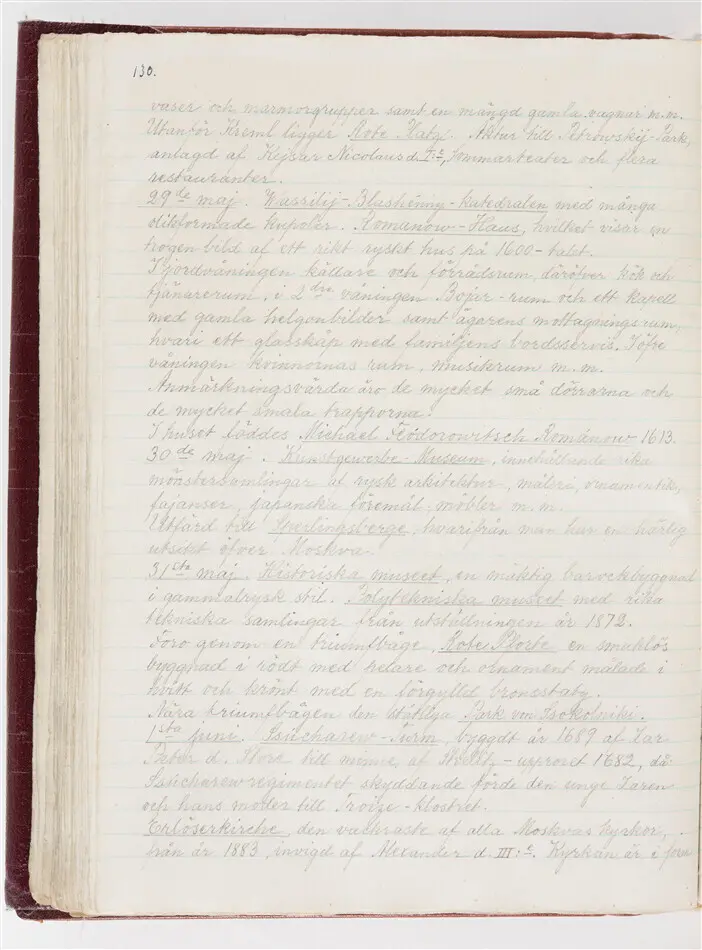 130.
vaser och marmorgrupper samt en mängd gamla vagnar m.m.
Utanför Kreml ligger Rote Platz. Åktur till Petrowskij-Park,
anlagd af Kejsar Nicolaus d. I:e, Sommarteater och flera
restauranter.
29de maj. Wassilij-Blashenny-katedralen med många
olikformade kupoler. Romanow-Haus, hvilket visar en
trogen bild af ett rikt ryskt hus på 1600-talet.
I jordvåningen källare och förrådsrum, däröfver kök och
tjänarerum, i 2dra våningen Bojar-rum och ett kapell
med gamla helgonbilder samt ägarens mottagningsrum,
hvari ett glasskåp med familjens bordsservis. I öfre
våningen kvinnornas rum, musikrum m.m.
Anmärkningsvärda äro de mycket små dörrarna och
de mycket smala trapporna.
I huset föddes Michael Feodorowitsch Románow 1613.
30de maj. Kunstgewerbe-Museum, innehållande rika
mönstersamlingar af rysk arkitektur, måleri, ornamentik,
fajanser, japanska föremål, möbler m.m.
Utfärd till Sperlingsberge, hvarifrån man har en härlig
utsikt öfver Moskva.
31sta maj. Historiska museet, en mäktig barockbyggnad
i gammalrysk stil. Polytekniska museet med rika
tekniska samlingar från utställningen år 1872.
Foro genom en triumfbåge, Rote Pforte en smaklös
byggnad i rödt med pelare och ornament målade i
hvitt och krönt med en förgylld bronsstaty.
Nära triumfbågen den utsökta Park von Ssokolniki.
1sta juni. Ssucharew-Turm, byggdt år 1689 af Zar
Peter d. Store till minne af Strelitz-upproret 1682, då
Ssucharewregimentet skyddande förde den unge Zaren
och hans moder till Troize-klostret.
Erlöserkirche, den vackraste af alla Moskvas kyrkor,
från år 1883, invigd af Alexander d. III:e. Kyrkan är i form